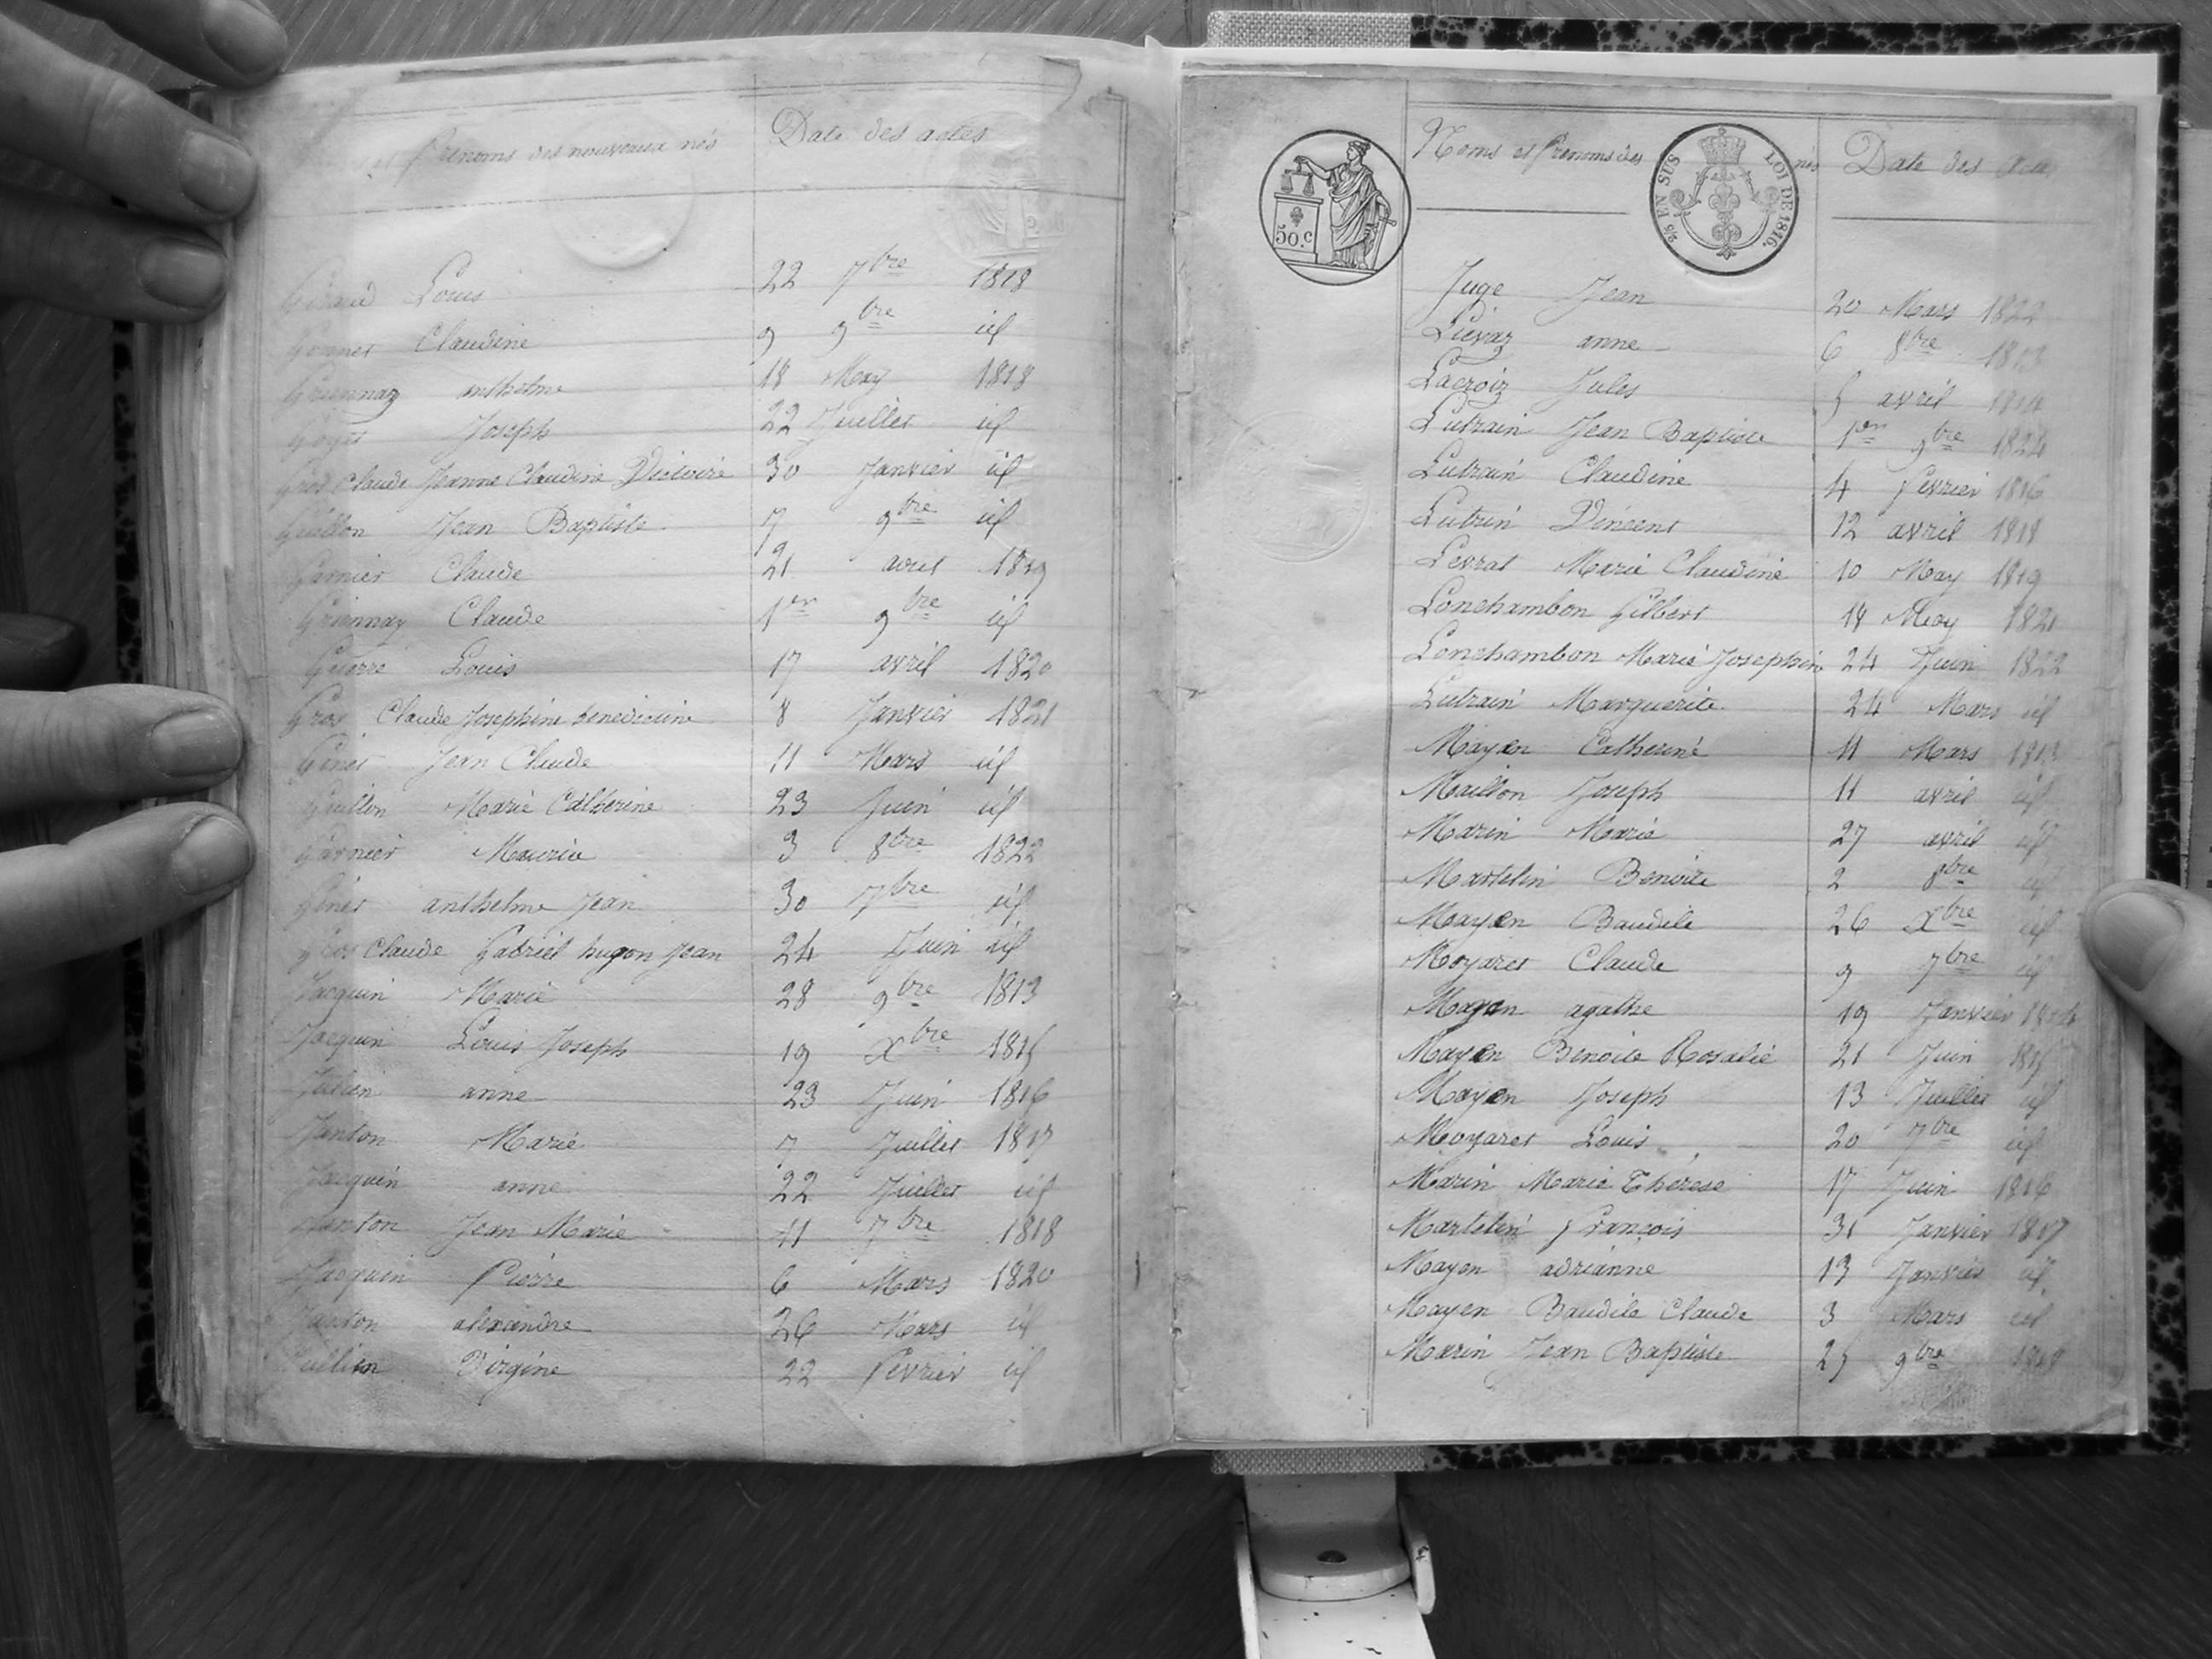 et Prenoms des nouveaux nés Date des actes
Giraud Louis 22 7bre 1818
Gonnet Claudine 9 9bre id
Griennay anthelme 18 May 1818
Goyet Joseph 22 Juillet id
Gros Claude Jeanne Claudine Victoire 30 Janvier id
Guillon Jean Baptiste 7 9bre id
Garnier Claude 21 avril 1819
Griennay Claude 1er 9bre id
Guerre Louis 17 avril 1820
Gros Claude Josephine benedictine 8 Janvier 1821
Genet Jean Claude 11 Mars id
Guillon Marie Catherine 23 Juin id
Garnier Maurice 3 8bre 1822
Genet anthelme Jean 30 7bre id
Gros Claude Gabriel hugon Jean 24 Juin id
Jacquin Marie 28 9bre 1813
Jacquin Louis Joseph 19 Xbre 1815
Julien anne 23 Juin 1816
Janton Marie 7 Juillet 1817
Jacquin anne 22 Juillet id
Janton Jean Marie 11 7bre 1818
Jacquin Pierre 6 Mars 1820
Janton alexandre 26 Mars id
Jullien Virgine 22 Fevrier id
50.c
2/5 EN SUS LOI DE 1816.
Noms et Prenoms des nés Date des actes
Juge Jean 20 Mars 1822
Lievaz anne 6 8bre 1813
Lacroix Jules 5 avril 1814
Lutrain Jean Baptiste 1er 9bre 1824
Lutrain Claudine 4 Fevrier 1816
Lutrin Vincent 12 avril 1818
Levrat Marie Claudine 10 May 1819
Lonchambon Gilbert 18 May 1821
Lonchambon Marie Josephine 24 Juin 1822
Lutrain Marguerite 24 Mars id
Mayen Catherine 11 Mars 1813
Maillon Joseph 11 avril id
Marin Marie 27 avril id
Martelin Benoite 2 8bre id
Mayen Baudile 26 Xbre id
Moyaret Claude 9 7bre id
Mayen agathe 19 Janvier 1814
Mayen Benoite Rosalie 21 Juin 1815
Mayen Joseph 13 Juillet id
Moyaret Louis 20 7bre id
Marin Marie Therese 17 Juin 1816
Martelin François 31 Janvier 1817
Mayen adrianne 13 Janvier id
Mayen Baudile Claude 3 Mars id
Marin Jean Baptiste 25 9bre 1818